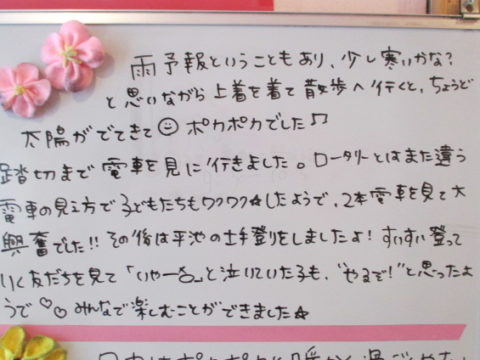 雨予報ということもあり、少し寒いかな?
と思いながら上着を着て散歩へ行くと、ちょうど
太陽がでてきて☺ポカポカでした♫
踏切まで電車を見に行きました。ロータリーとはまた違う
電車の見え方で子どもたちもワクワク☆したようで、2本電車を見て大
興奮でした!!その後は平池の土手登りをしましたよ!すいすい登って
いく友だちを見て「いやーる」と泣いていた子も、"やるぞ!"と思ったよ
うで♡♡みんなで楽しむことができました☆